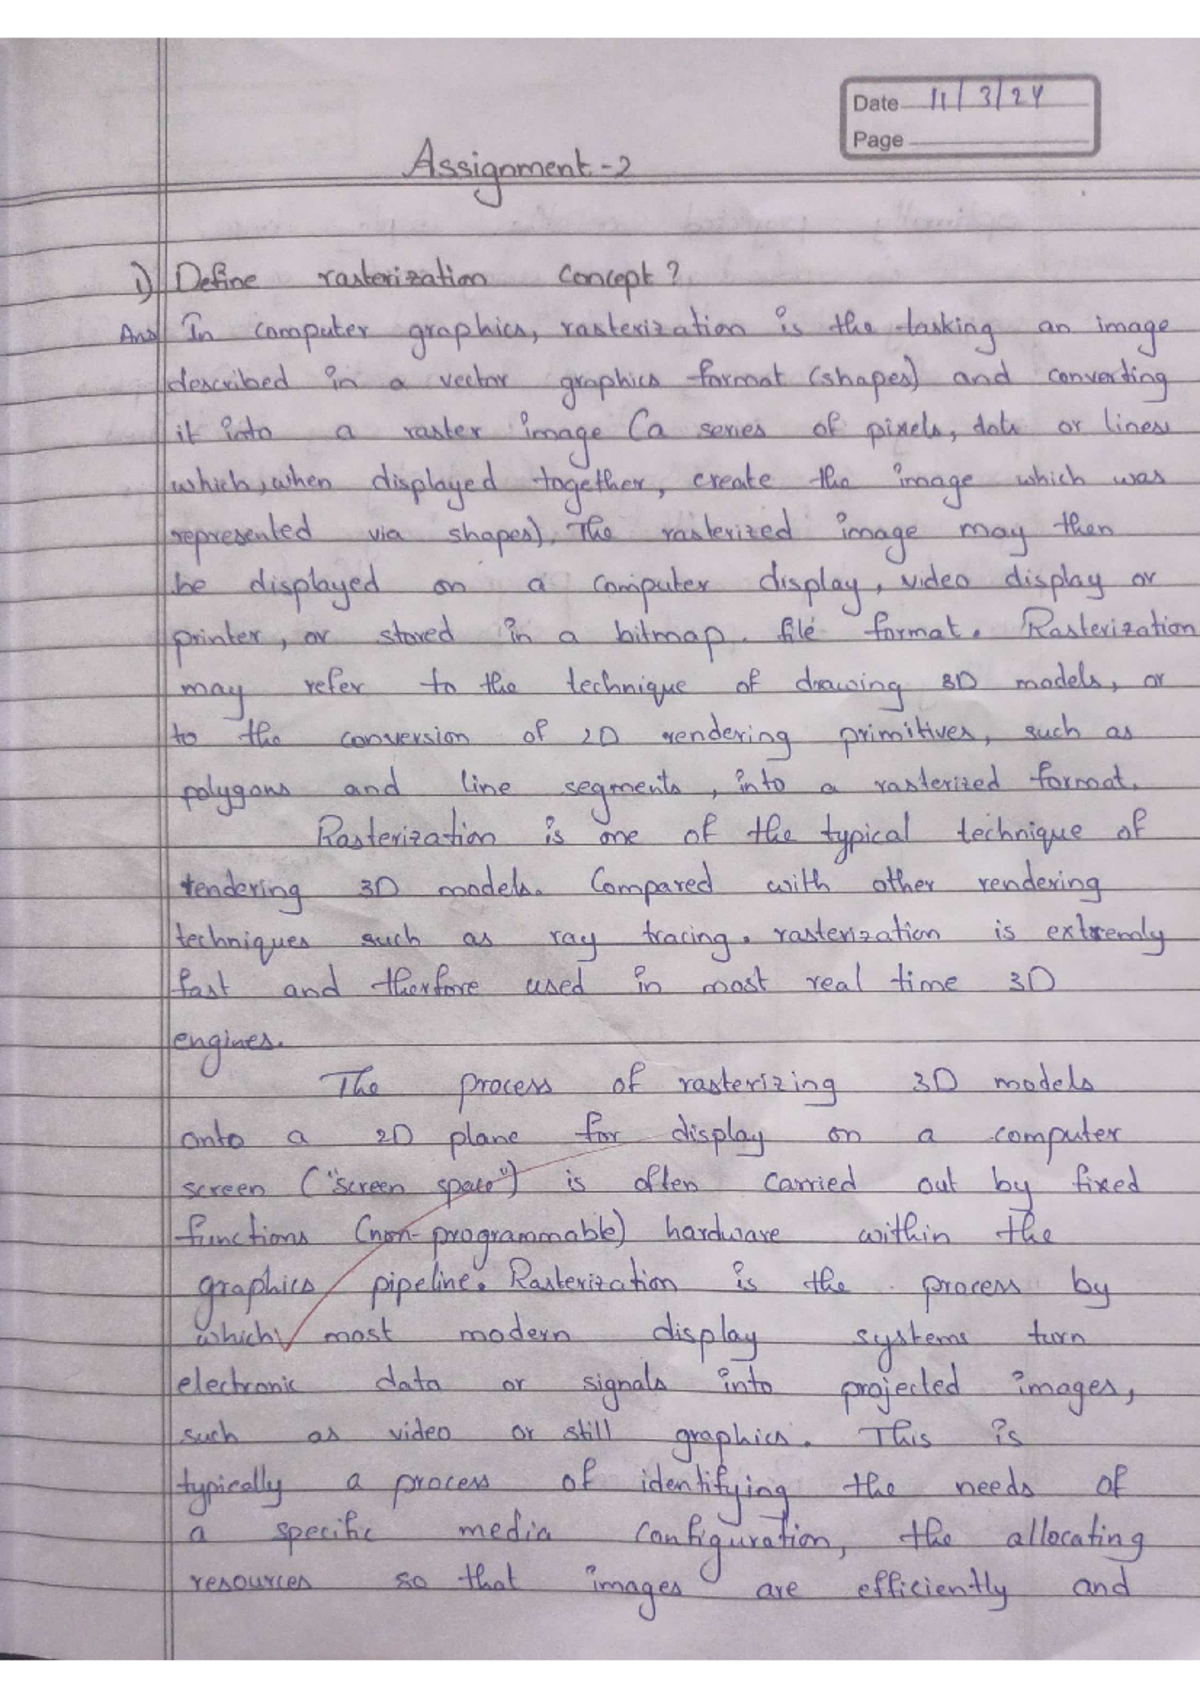 Date 11/3/24
Page
Assignment-2
1) Define rasterization Concept?
Ans In computer graphics, rasterization is the tasking an image
described in a vector graphics format (shapes) and converting
it into a raster image (a series of pixels, dots or lines
which, when displayed together, create the image which was
represented via shapes). The rasterized image may then
be displayed on a computer display, video display or
printer, or stored in a bitmap. file format. Rasterization
may refer to the technique of drawing 3D models, or
to the conversion of 2D rendering primitives, such as
polygons and line segments, into a rasterized format.
Rasterization is one of the typical technique of
rendering 3D models. Compared with other rendering
techniques such as ray tracing, rasterization is extremly
fast and therfore used in most real time 3D
engines.
The process of rasterizing 3D models
onto a 2D plane for display on a computer
screen ("screen space") is often carried out by fixed
functions (non-programmable) hardware within the
graphics pipeline. Rasterization is the process by
which most modern display systems turn
electronic data or signals into projected images,
such as video or still graphics. This is
typically a process of identifying the needs of
a specific media configuration, the allocating
resources so that images are efficiently and